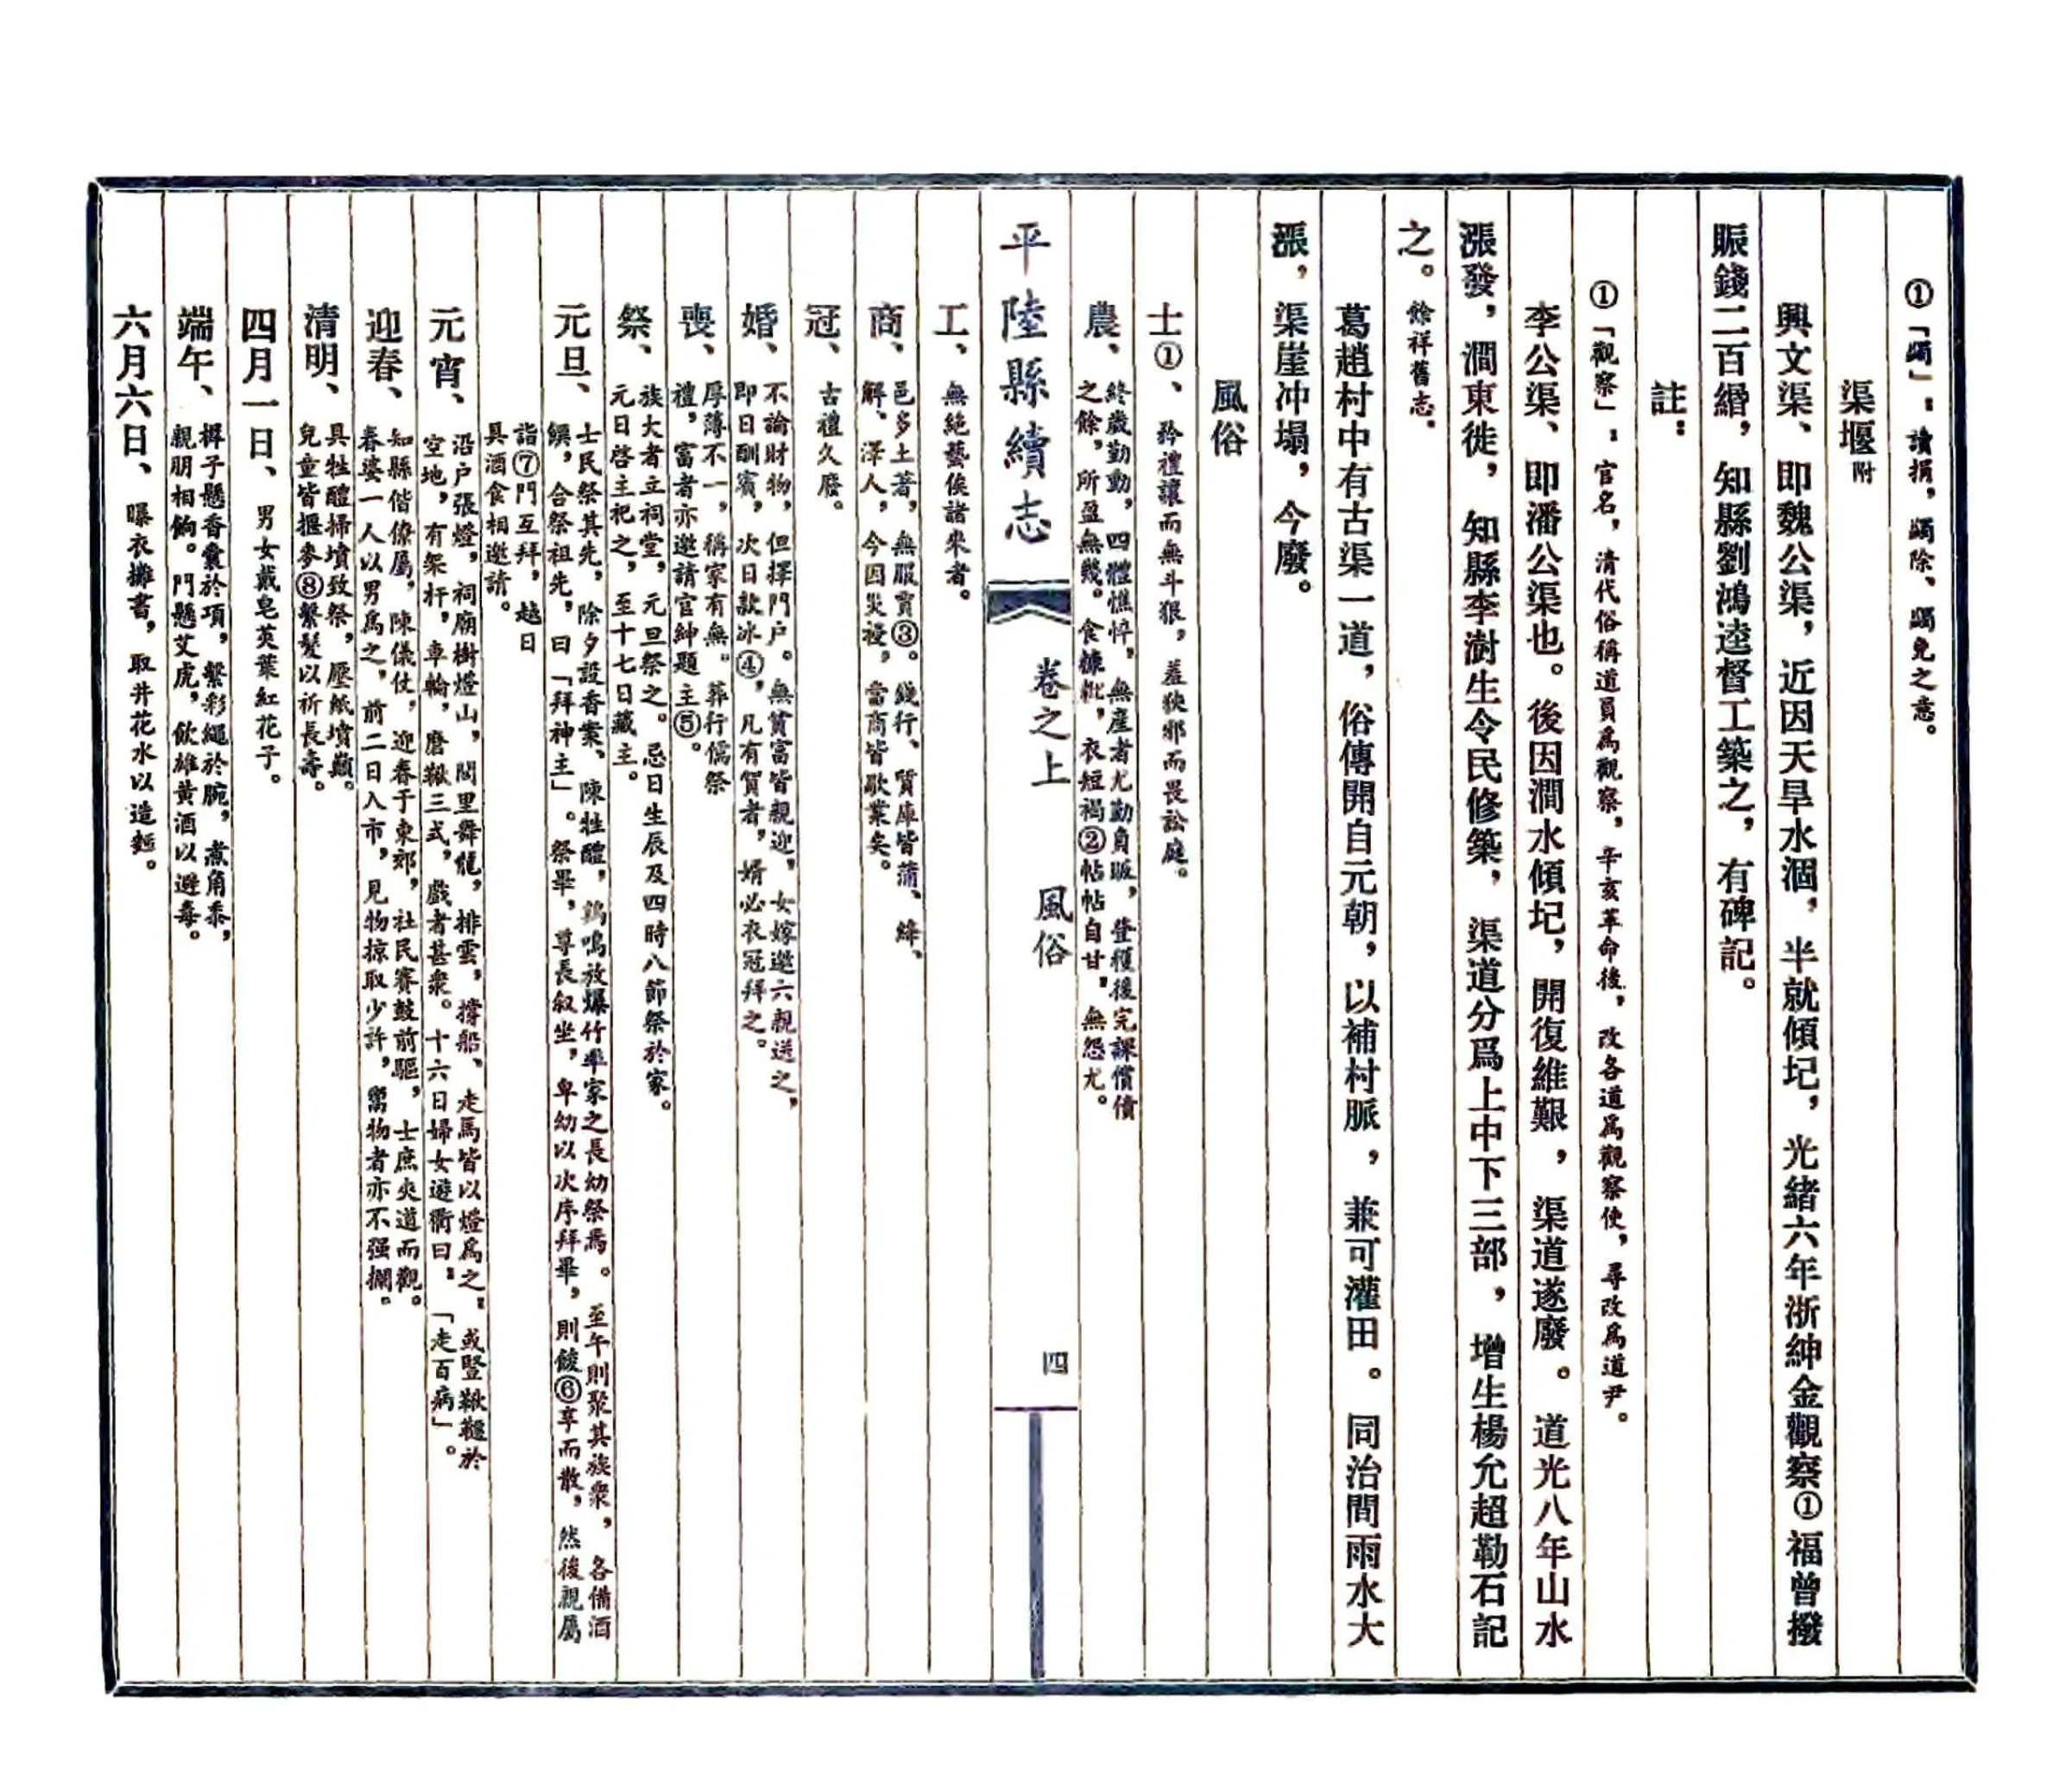 ①「蠲」：讀捐，蠲除、蠲免之意。
渠堰附
興文渠、即魏公渠，近因天旱水涸，半就傾圮，光緒六年浙紳金觀察①福曾撥
賑錢二百緡，知縣劉鴻逵督工築之，有碑記。
註：
①「觀察」：官名，清代俗稱道員爲觀察，辛亥革命後，改各道爲觀察使，尋改爲道尹。
李公渠、即潘公渠也。後因澗水傾圮，開復維艱，渠道遂廢。道光八年山水
漲發，澗東徙，知縣李澍生令民修築，渠道分爲上中下三部，增生楊允超勒石記
之。餘祥舊志。
葛趙村中有古渠一道，俗傳開自元朝，以補村脈，兼可灌田。同治間雨水大
漲，渠崖冲塌，今廢。
風俗
士①、矜禮讓而無斗狠，羞狹邪而畏訟庭。
農、終歲勤動，四體憔悴，無產者尤勤負販，登穫後完課償債
之餘，所盈無幾。食糠粃，衣短褐②帖帖自甘，無怨尤。
平陸縣續志 卷之上 風俗 四
工、無絕藝俟諸來者。
商、邑多土著，無服賈③。錢行、質庫皆蒲、絳、
解、澤人，今因災祲，當商皆歇業矣。
冠、古禮久廢。
婚、不論財物，但擇門户。無貧富皆親迎，女嫁邀六親送之，
即日酬賓，次日款冰④，凡有賀者，婿必衣冠拜之。
喪、厚薄不一，稱家有無。葬行儒祭
禮，富者亦邀請官紳題主⑤。
祭、族大者立祠堂，元旦祭之。忌日生辰及四時八節祭於家。
元日啓主祀之，至十七日藏主。
元旦、士民祭其先，除夕設香案、陳牲醴，鷄鳴放爆竹率家之長幼祭焉。至午則聚其族衆，各備酒
饌，合祭祖先，曰「拜神主」。祭畢，尊長叙坐，卑幼以次序拜畢，則餕⑥享而散，然後親屬
詣⑦門互拜，越日
具酒食相邀請。
元宵、沿户張燈，祠廟樹燈山，閭里舞龍，排雲，撐船、走馬皆以燈爲之；或豎鞦韆於
空地，有架杆，車輪，磨鞦三式，戲者甚衆。十六日婦女遊衢曰：「走百病」。
迎春、知縣偕僚屬，陳儀仗，迎春于東郊，社民賽鼓前驅，士庶夾道而觀。
春婆一人以男爲之，前二日入市，見物掠取少許，鬻物者亦不强攔。
清明、具牲醴掃墳致祭，壓紙墳巔。
兒童皆摳麥⑧繫髮以祈長壽。
四月一日、男女戴皂莢葉紅花子。
端午、樨子懸香囊於項，繫彩繩於腕，煮角黍，
親朋相餉。門懸艾虎，飲雄黄酒以避毒。
六月六日、曝衣攤書，取井花水以造麵。